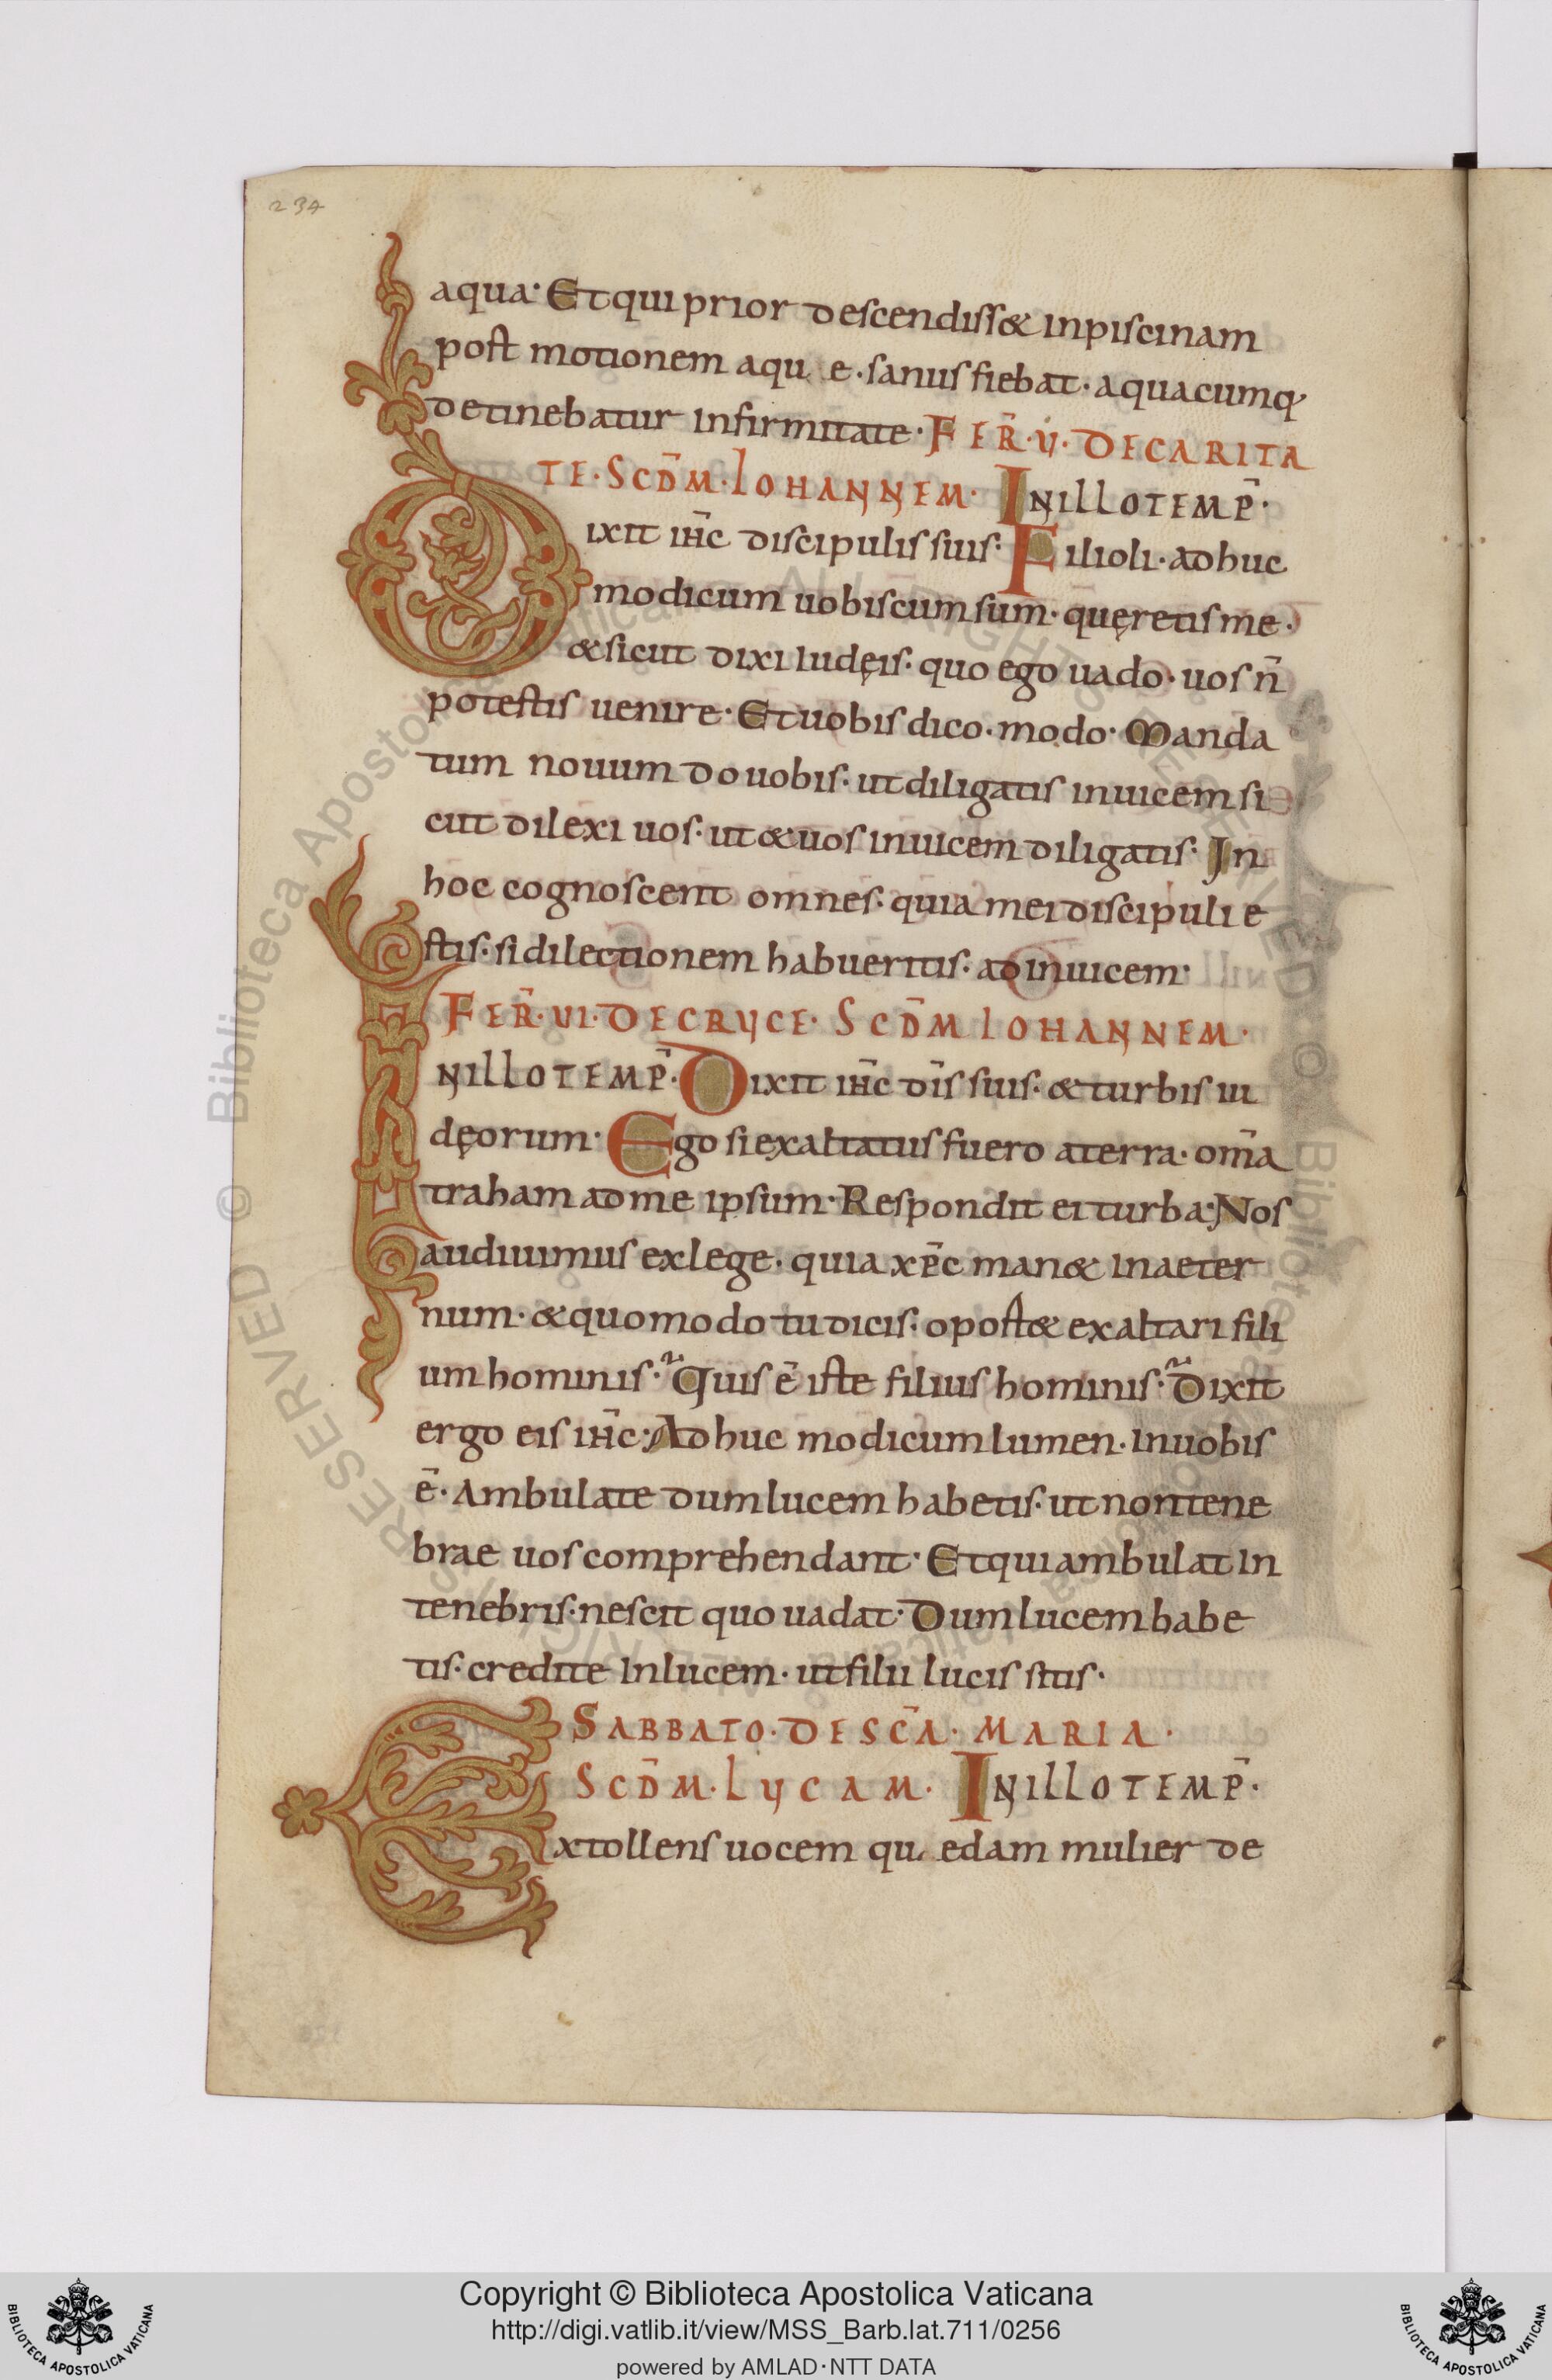 234
aqua· Et qui prior descendiss& in piscinam
post motionem aqu e· sanus fiebat· a quacumq;
detinebatur infirmitate· FER̄· V· DE CARITA
TE· SCD̄M· IOHANNEM· IN ILLO TEMP̄·
Dixit ih̄c discipulis suis· Filioli· adhuc
modicum uobiscum sum· quęretis me·
& sicut dixi iudęis· quo ego uado· uos n̄
potestis uenire· Et uobis dico· modo· Manda
tum nouum do uobis· ut diligatis inuicem si
cut dilexi uos· ut & uos inuicem diligatis· In
hoc cognoscent omnes· quia mei discipuli e
stis· si dilectionem habueritis· ad inuicem·
FER̄· VI· DE CRUCE· SCD̄M IOHANNEM·
IN ILLO TEMP̄· Dixit ih̄c dīs suis· & turbis iu
dęorum· Ego si exaltatus fuero a terra· om̄a
traham ad me ipsum· Respondit ei turba· Nos
audiuimus ex lege· quia xp̄c man& in aeter
num· & quomodo tu dicis· oport& exaltari fili
um hominis· Quis ē iste filius hominis· Dixit
ergo eis ih̄c· Adhuc modicum lumen· in uobis
ē· Ambulate dum lucem habetis· ut non tene
brae uos comprehendant· Et qui ambulat in
tenebris· nescit quo uadat· Dum lucem habe
tis· credite in lucem· ut filii lucis sitis·
SABBATO· DE SC̄A· MARIA·
SCD̄M· LUCAM· IN ILLO TEMP̄·
Extollens uocem qu edam mulier de
Copyright © Biblioteca Apostolica Vaticana
http://digi.vatlib.it/view/MSS_Barb.lat.711/0256
powered by AMLAD·NTT DATA
BIBLIOTECA APOSTOLICA VATICANA
BIBLIOTECA APOSTOLICA VATICANA